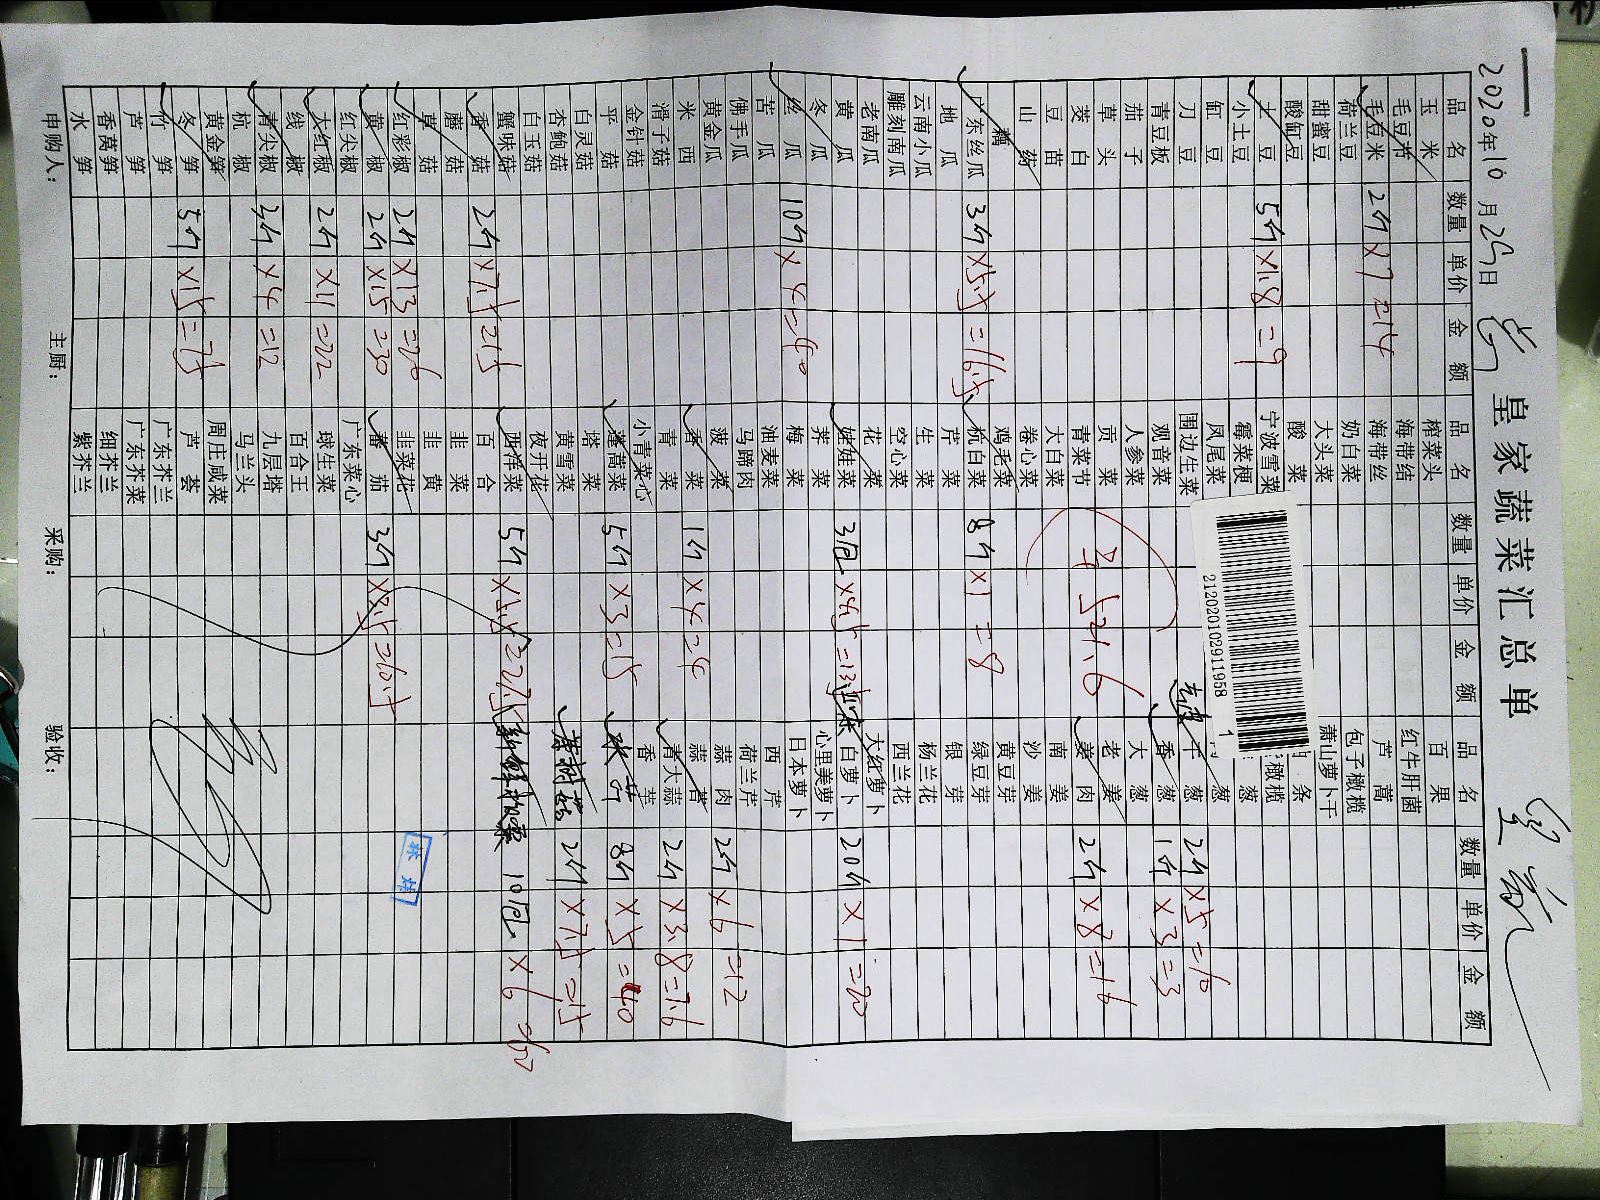 皇家蔬菜汇总单
2020年10月25日
212020102911958 1
品名 数量 单价 金额 品名 数量 单价 金额 品名 数量 单价 金额
玉米 榨菜头 百果
毛豆节 海带结 红牛肝菌
毛豆米 2斤 ×7 =14 海带丝 芦蒿
荷兰豆 奶白菜 包子橄榄
甜蜜豆 大头菜 萧山萝卜干
酸缸豆 酸菜 条
土豆 5斤 ×1.8 =9 宁波雪菜 橄榄
小土豆 霉菜梗 葱
缸豆 凤尾菜 葱
刀豆 围边生菜 干葱 2斤 ×5 =10
青豆板 观音菜 香葱 1斤 ×3 =3
茄子 人参菜 大葱
草头 贡菜 老姜 2斤 ×8 =16
茭白 青菜节 肉姜
豆苗 大白菜 南姜
山药 卷心菜 沙姜
藕 鸡毛菜 黄豆芽
广东丝瓜 3斤 ×5.5 =16.5 杭白菜 8斤 ×1 =8 绿豆芽
地瓜 芹菜 银芽
云南小瓜 生菜 杨兰花
雕刻南瓜 空心菜 西兰花
老南瓜 花菜 大红萝卜
黄瓜 娃娃菜 3包 ×4.5 =13.5 白萝卜 20斤 ×1 =20
冬瓜 荠菜 心里美萝卜
丝瓜 10斤 ×4 =40 梅菜 日本萝卜
苦瓜 油麦菜 西芹
佛手瓜 马蹄肉 荷兰芹
黄金瓜 菠菜 蒜肉 2斤 ×6 =12
米西 香菜 1斤 ×4 =4 蒜苔
滑子菇 青菜 青大蒜 2斤 ×3.8 =7.6
金针菇 小青菜心 香芋
平菇 蓬蒿菜 5斤 ×3 =15 8斤 ×5 =40
白灵菇 塔菜
杏鲍菇 黄雪菜 茶树菇 2斤 ×7.5 =15
白玉菇 夜开花
蟹味菇 西洋菜 5斤 ×5.5 =27.5 10包 ×6 =60
香菇 2斤 ×7.5 =15 百合
蘑菇 韭菜
草菇 韭黄
红彩椒 2斤 ×13 =26 韭菜花
黄椒 2斤 ×15 =30 番茄 3斤 ×3.5 =10.5
红尖椒 广东菜心
大红椒 2斤 ×11 =22 球生菜
线椒 百合王
青尖椒 3斤 ×4 =12 九层塔
杭椒 马兰头
黄金笋 周庄咸菜
冬笋 5斤 ×15 =75 芦荟
竹笋 广东芥兰
芦笋 广东芥菜
香莴笋 细芥兰
水笋 紫芥兰
521.6
申购人： 主厨： 采购： 验收：